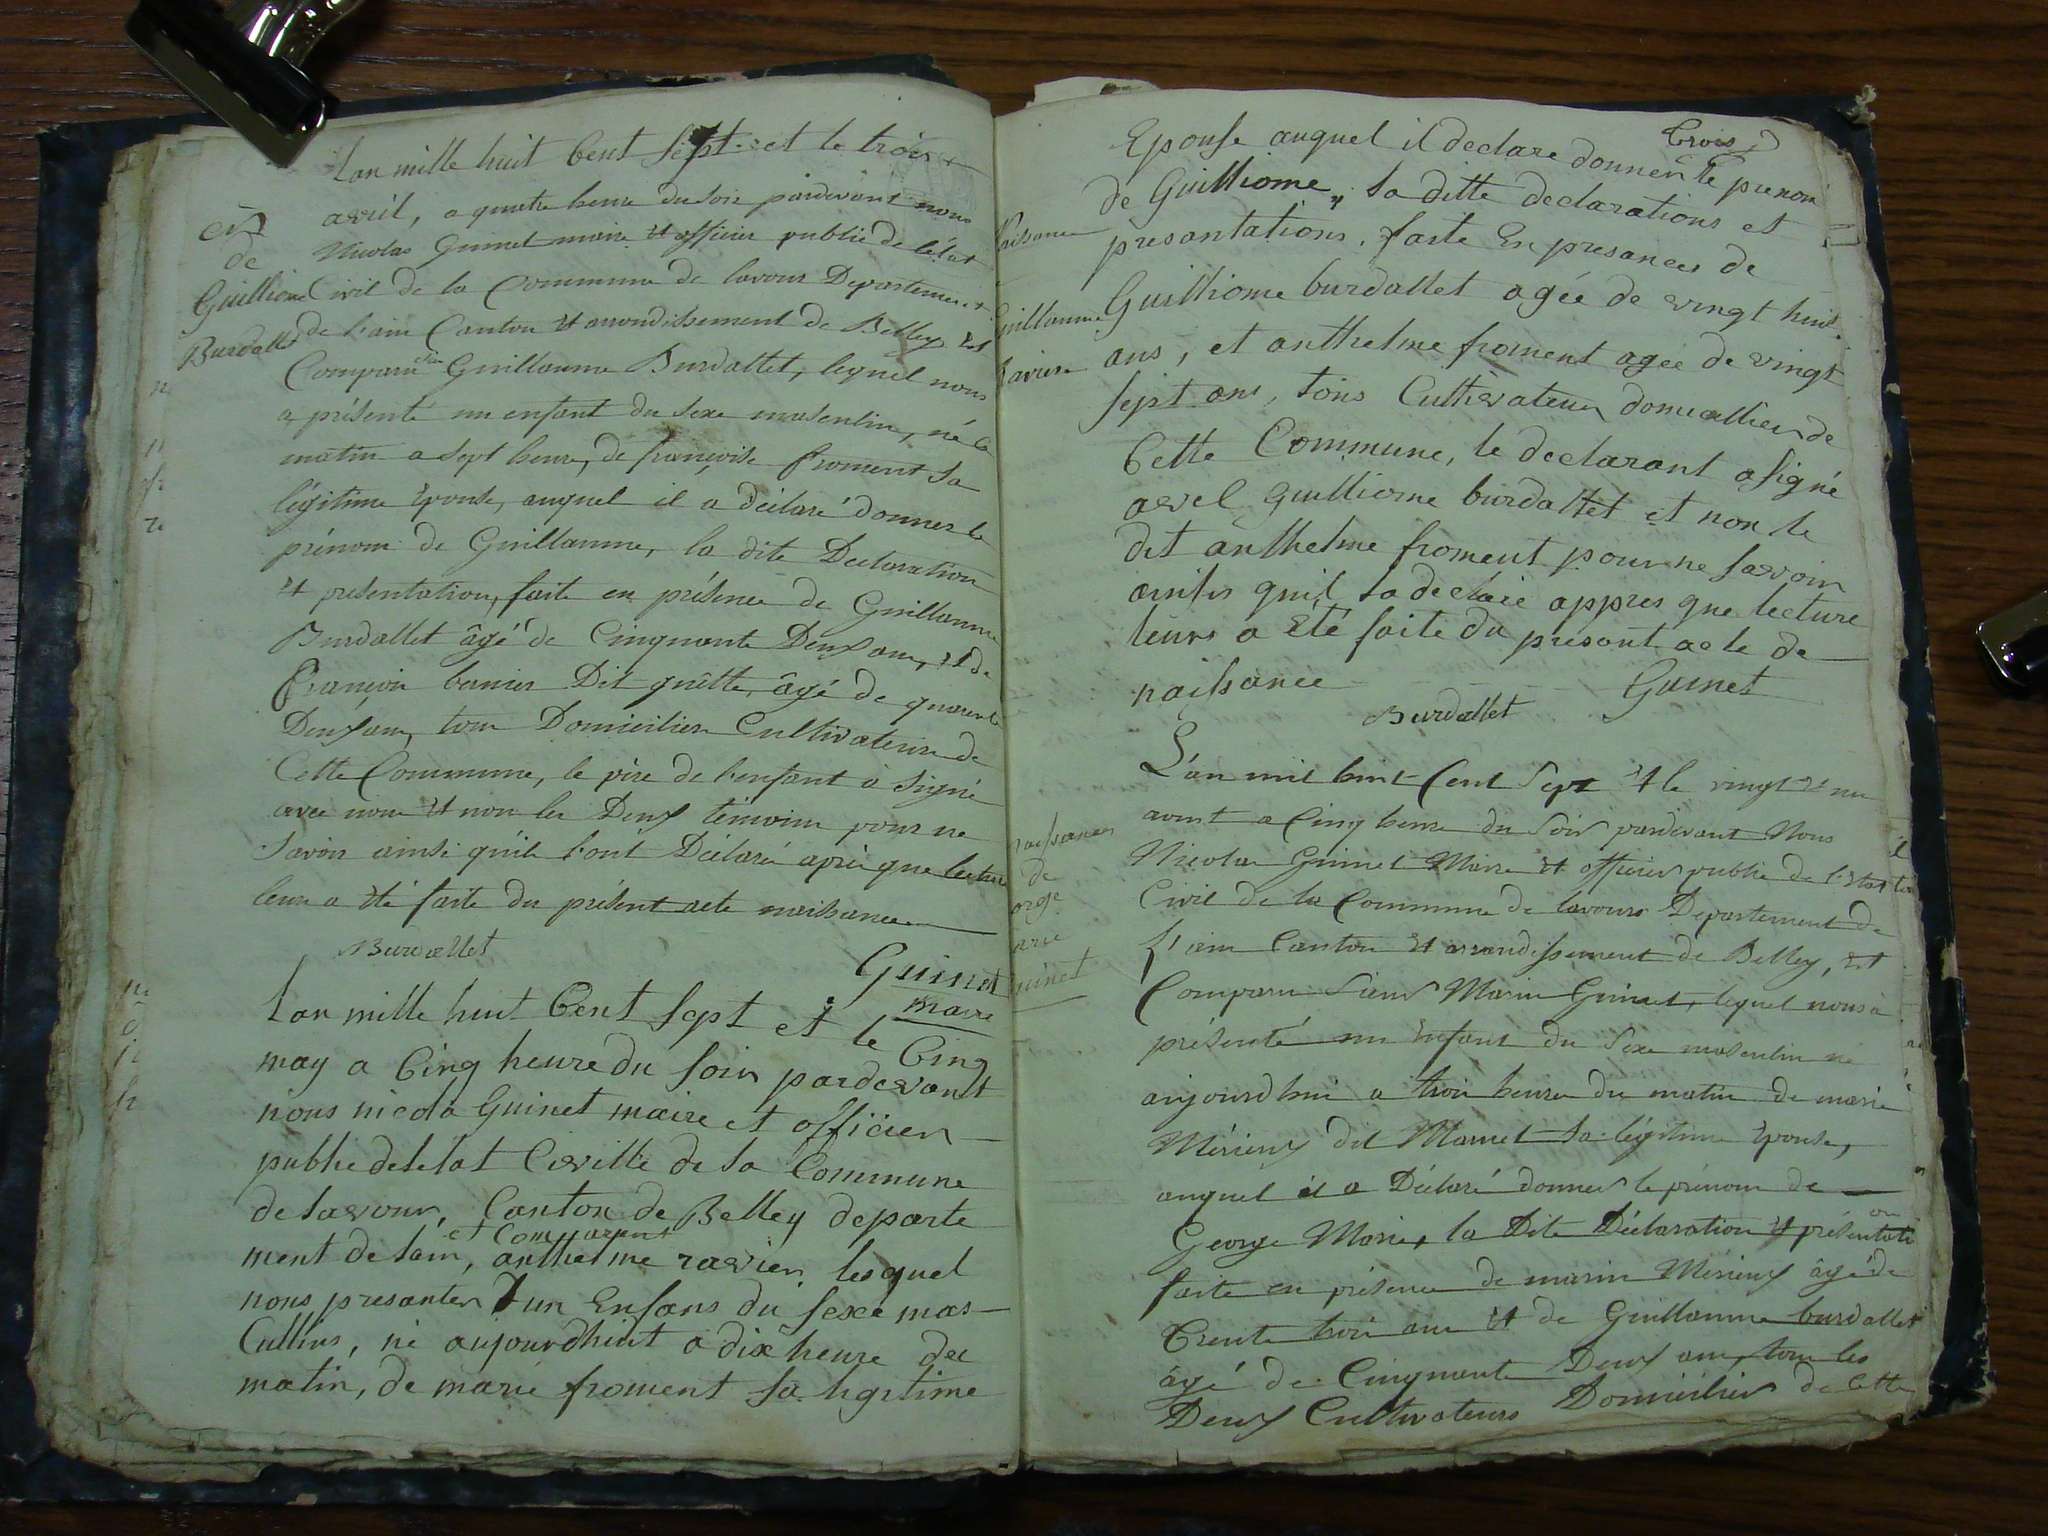 Lan mille huit Cent Sept et le trois
avril, a quatre heure du soir pardevant nous
Nicolas Guinet maire et officier public de l'état
Civil de la Commune de lavour Departement
de l'ain Canton et arrondissement de Belley est
Comparu Guillaume Burdallet, lequel nous
a présenté un enfant du sexe masculin, né ce
matin a sept heure, de françoise froment sa
légitime épouse, auquel il a déclaré donner le
prénom de Guillaume, la dite Déclaration
et présentation, faite en présence de Guillaume
Burdallet âgé de Cinquante Deux ans, et de
françois Dit quètte, âgé de quarante
Deux ans, tous Domiciliers Cultivateurs de
Cette Commune, le père de l'enfant a Signé
avec nous et non les Deux témoins pour ne
Savoir ainsi qu'ils l'ont Déclaré après que lecture
leur a été faite du présent acte naissance
Burdallet
Guinet
maire
de
Guilliome
Burdallet
Lan mille huit Cent Sept et le Cinq
may a Cinq heure du soir pardevant
nous nicola Guinet maire et officier
public deletat Civille de la Commune
de lavour, Canton de Belley departe
ment de lain, et Comparent anthelme ravier lesquel
nous presanter un Enfans du sexe mas-
Cullins, né aujourdhuit a dix heure du
matin, de marie froment sa ligitime
trois
Epouse auquel il declare donner le prenom
de Guilliome, la ditte declarations et
presantations, faite En presances de
Guilliome burdallet agée de vingt huit
ans, et anthelme froment agée de vingt
sept ans, tous Cultivateur domeallier de
Cette Commune, le declarant a signé
avel Guilliome burdallet et non le
dit anthelme froment pour ne savoir
ainsis quil la declare appres que lecture
leurs a été faite du présant acte de
naissance
Guinet
Burdallet
naissance
Guillaume
ravier
L'an mil huit Cent Sept et le vingt et un
aout a Cinq heure du Soir pardevant Nous
Nicolas Guinet Maire et officier public de l'etat
Civil de la Commune de lavours Departement de
l'ain Canton et arrondissement de Belley, est
Comparu Sieur Marin Guinet, lequel nous a
présenté un Enfant du Sexe masculin né
aujourdhui a trois heures du matin de marie
Mérieux dit Mamet sa légitime épouse,
auquel il a Déclaré donner le prénom de
George Marie, la Dite Déclaration et présentation
faite en présence de marin Mérieux âgé de
Trente trois ans et de Guillaume burdallet
âgé de Cinquante Deux ans, tous les
Deux Cultivateurs Domiciliers de Cette
naissance
de
orge
arie
uinet